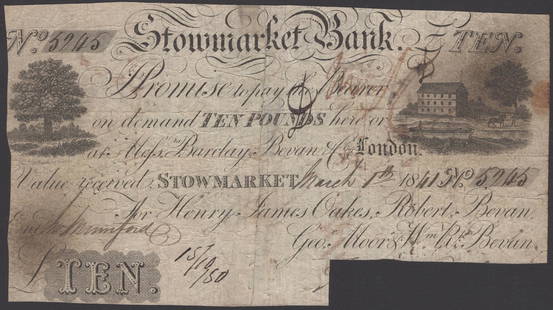 No 5245 Stowmarket Bank. TEN.
I Promise to pay the Bearer
on demand TEN POUNDS here or
at Messrs Barclay, Bevan & Co London.
Value received. STOWMARKET March 1th 1841 No. 5245
For Henry James Oakes, Robert Bevan
Geo. Moor & Wm Rt Bevan.
Mumford
£ TEN.
15/10/50